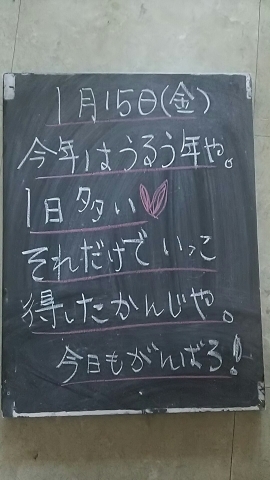 1月15日(金)
今年はうるう年や。
1日多い
それだけでいっこ
得したかんじや。
今日もがんばる!